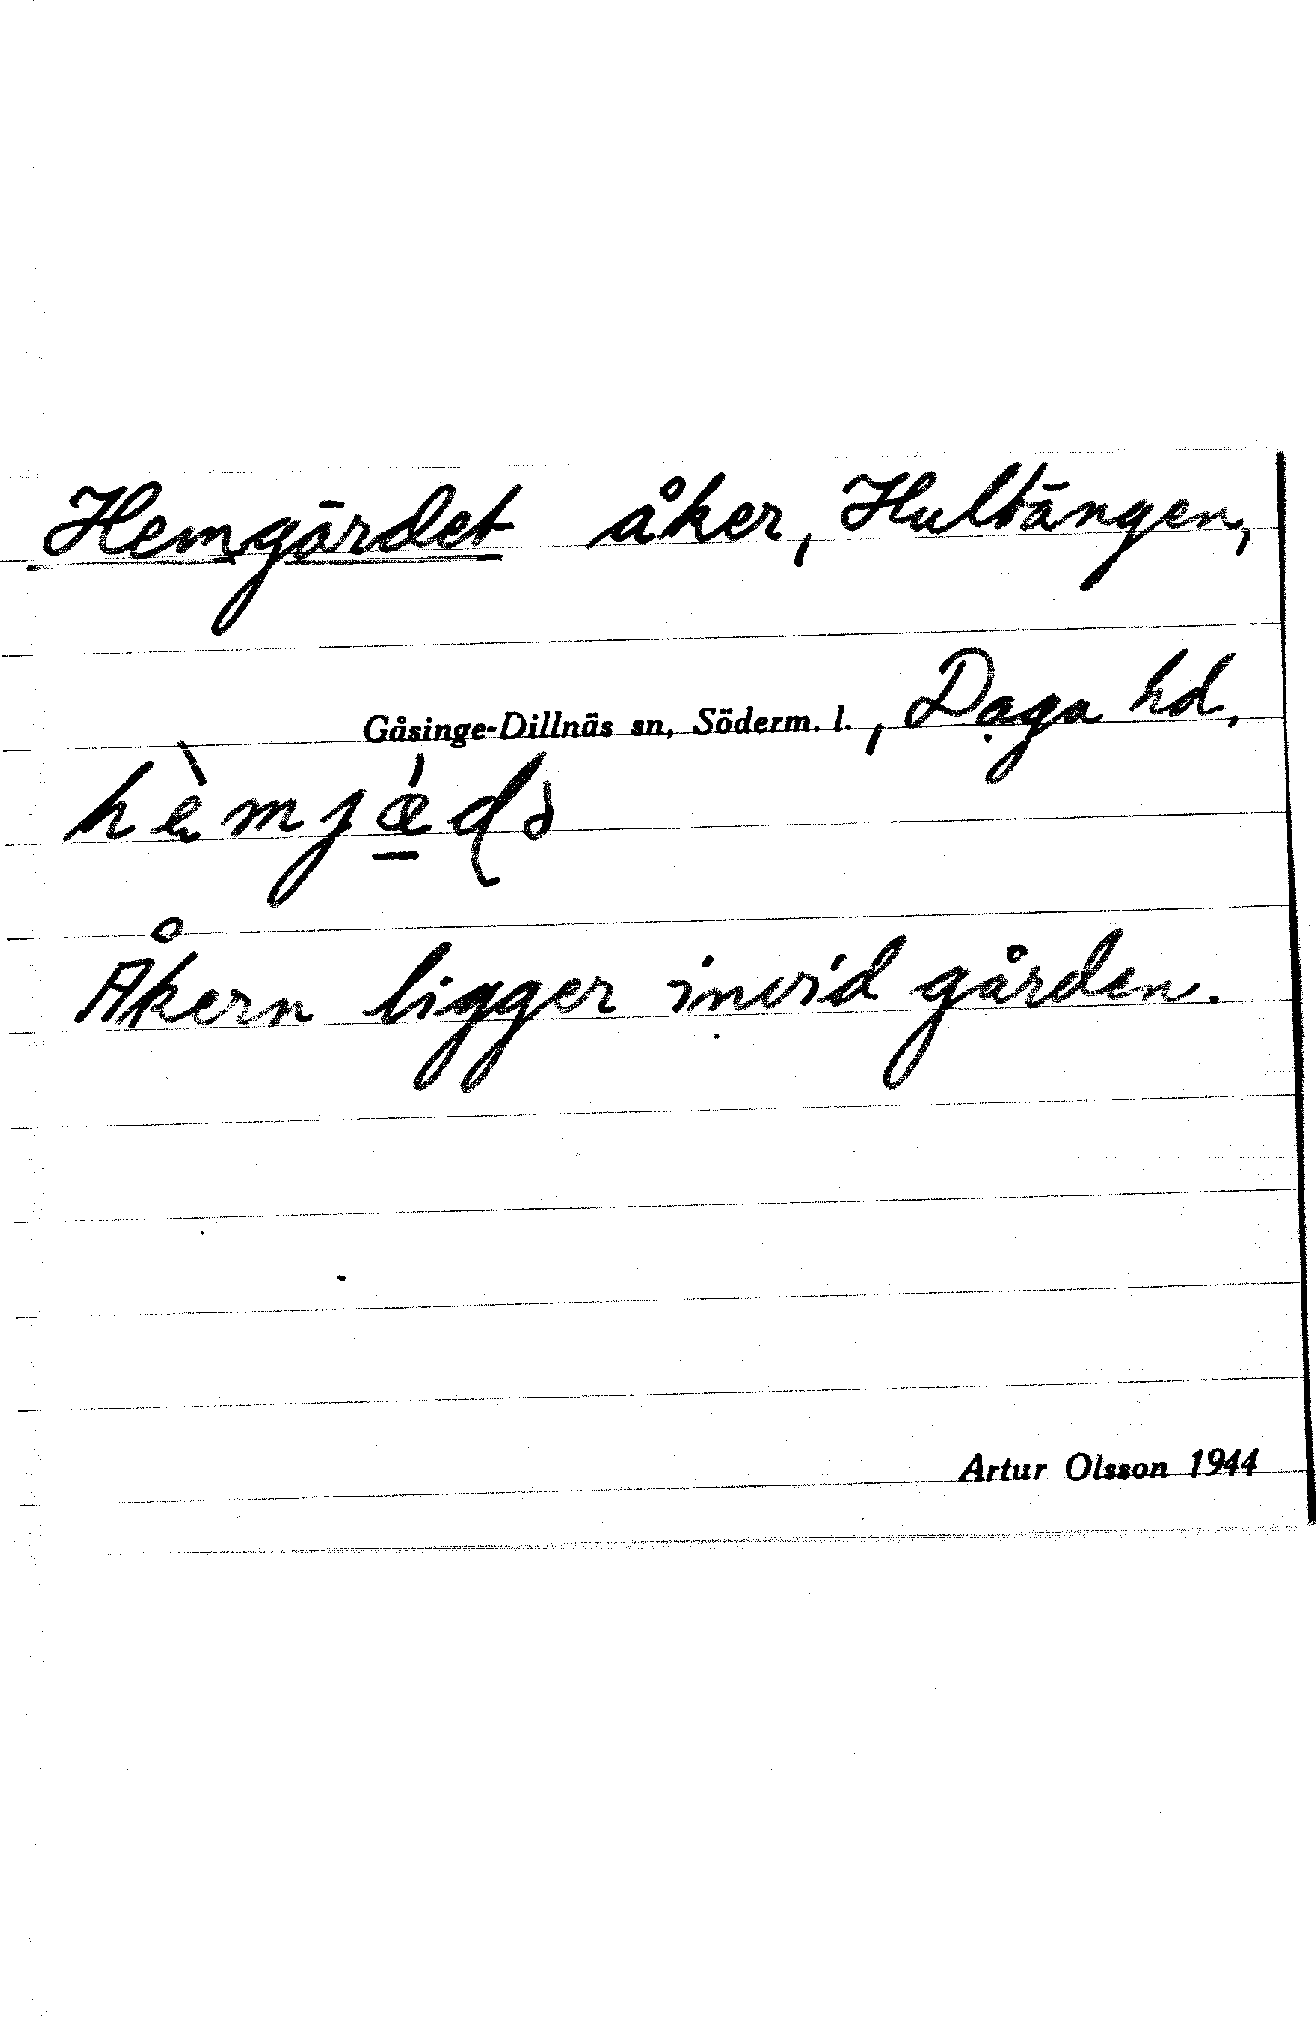 Hemgärdet åker, Hultängen,
Gåsinge-Dillnäs sn, Söderm. l., Daga hd.
hèmjǽ̲ɖə
Åkern ligger invid gården.
Artur Olsson 1944